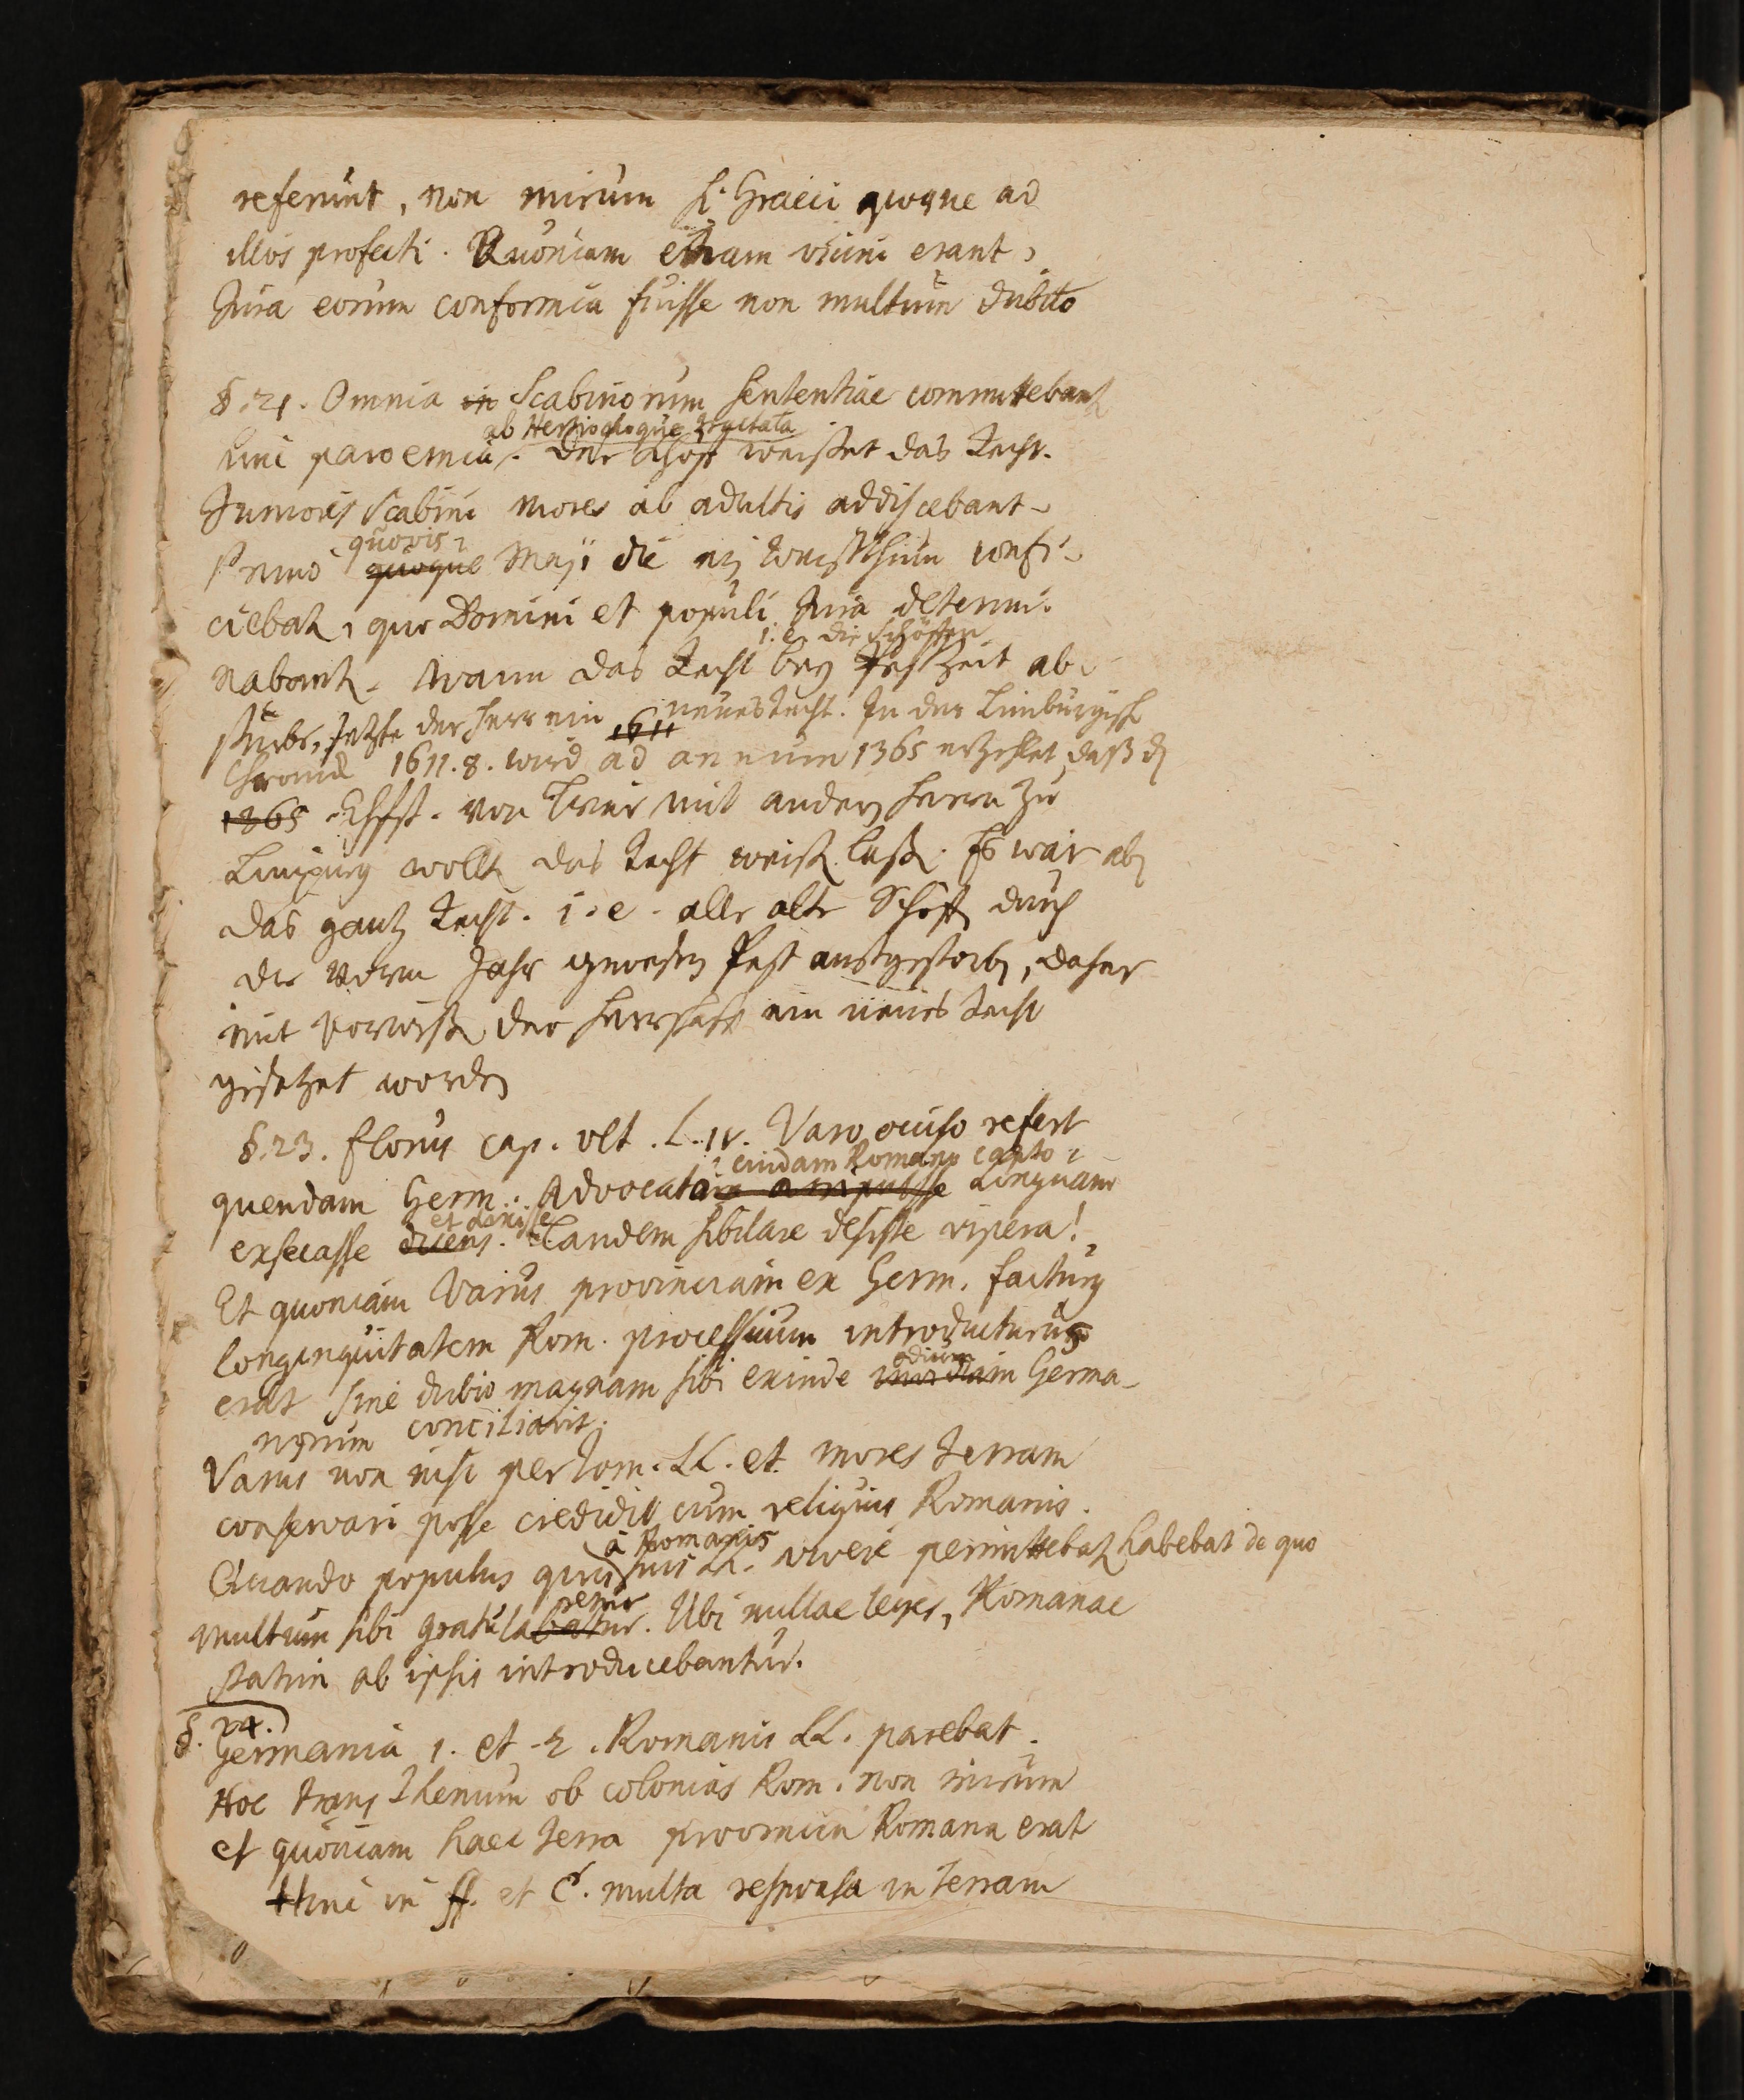 referunt, non mirum si Graeci quoque ad
illos profecti. Quoniam etiam vicini erant,
Jura eorum conformia fuisse non multum dubito
§. 21. Omnia in Scabinorum sententiae committebant
ab Hertio quoque tractata
hinc paroemia. Der Schöpf weißet das Recht.
Juniores Scabini mores ab adultis addiscebant.
quovis
Primo quoque Maji die ein Weißthum confi-
ciebat, quo Domini et populi Jura determi-
i. e. die Schöpfen
nabant. Wann das Recht bey Pestzeit ab-
stürbe, setzte der Herr ein neues Recht. In der Limburgisch
1611
Chronic 1611. 8. wird ad annum 1365 erzehlet, daß d
1365 Chfst. von Trier mit andern Herrn zu
Limpurg wollt das Recht weiß laß. Es war ab
das gantz Recht. i. e. alle alte Schöpf durch
die vorm Jahr gewesen Pest ausgestorb, daher
mit Vorwiß der Herrschafft ein neues Recht
gesetzet worden
§. 23. Florus cap. ult. L. IV. Varo occiso refert
cuidam Romano capto
quendam Germ. Advocato amputasse Linguam
et dixisse
exsecasse dicens. Tandem sibilare desiste vipera!
Et quoniam Varus provinciam ex Germ. facturus
longinquitatem Rom. processuum introducturus
odium
erat sine dubio magnam sibi exinde invidiam Germa-
norum conciliavit.
Varus non nisi per Rom. LL. et mores terram
conservari posse credidit cum reliquis Romanis.
à Romanis
Quando populus quis suis LL. vivere permittebat habebat de quo
remur
multum sibi gratulabatur. Ubi nullae leges, Romanae
statim ab ipsis introducebantur.
§. 24.
Germania 1. et 2. Romanis LL. parebat.
Hoc trans Rhenum ob colonias Rom. non mirum
et quoniam haec terra provincia Romana erat
Hinc in ff. et C. multa responsa in terram